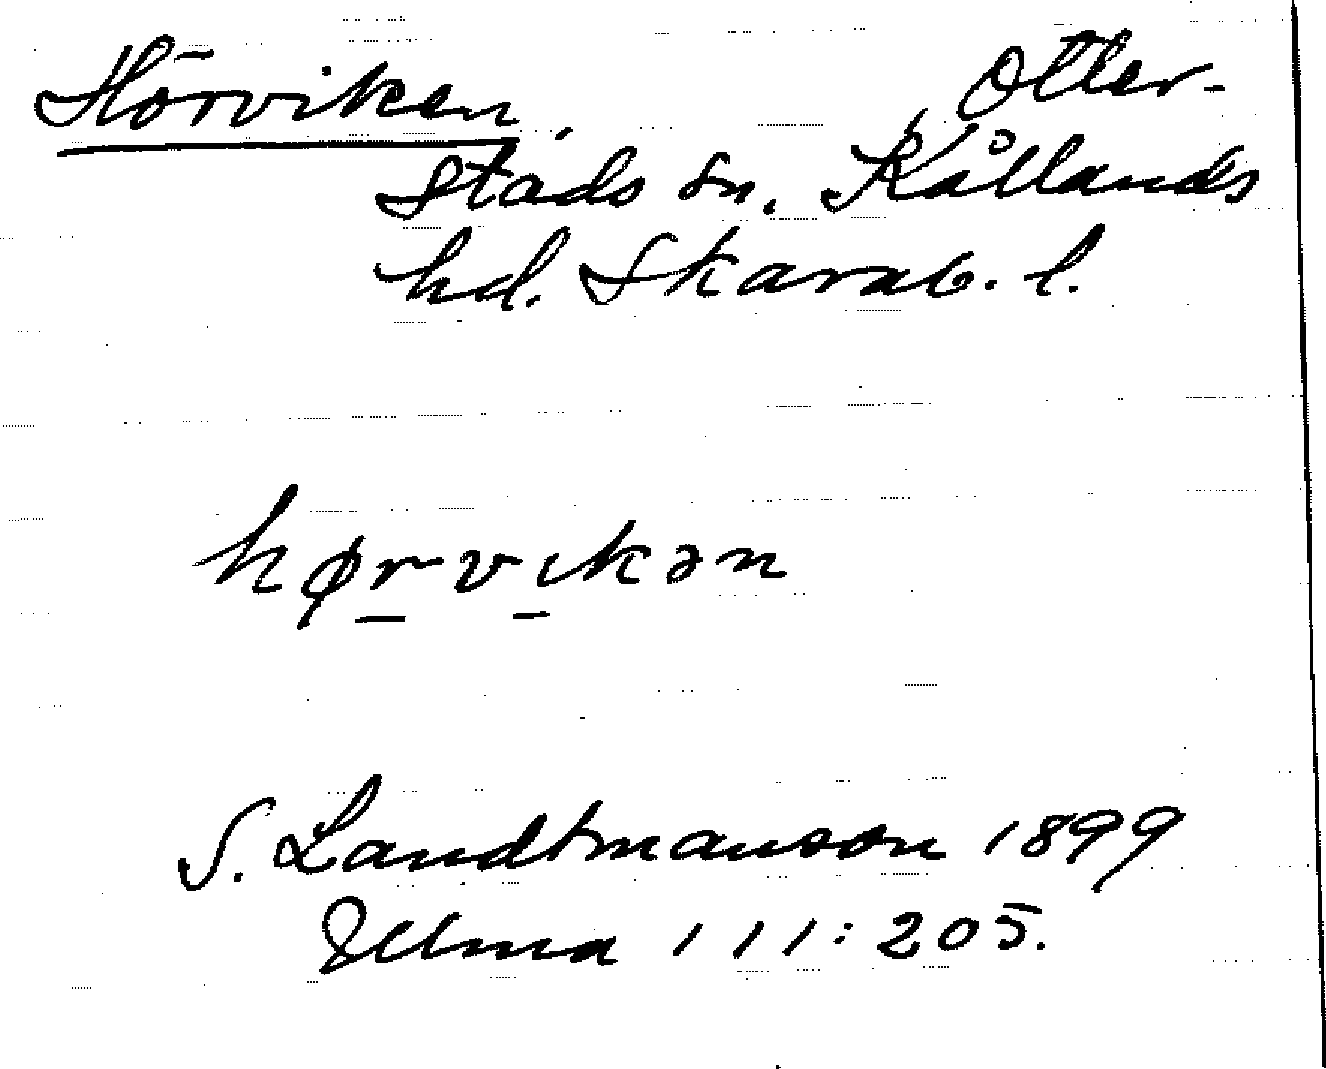 Hörviken, Otter-
stads sn. Kållands
hd. Skarab. l.
hørvıkən
S. Landtmanson 1899
Ulma 111:205.